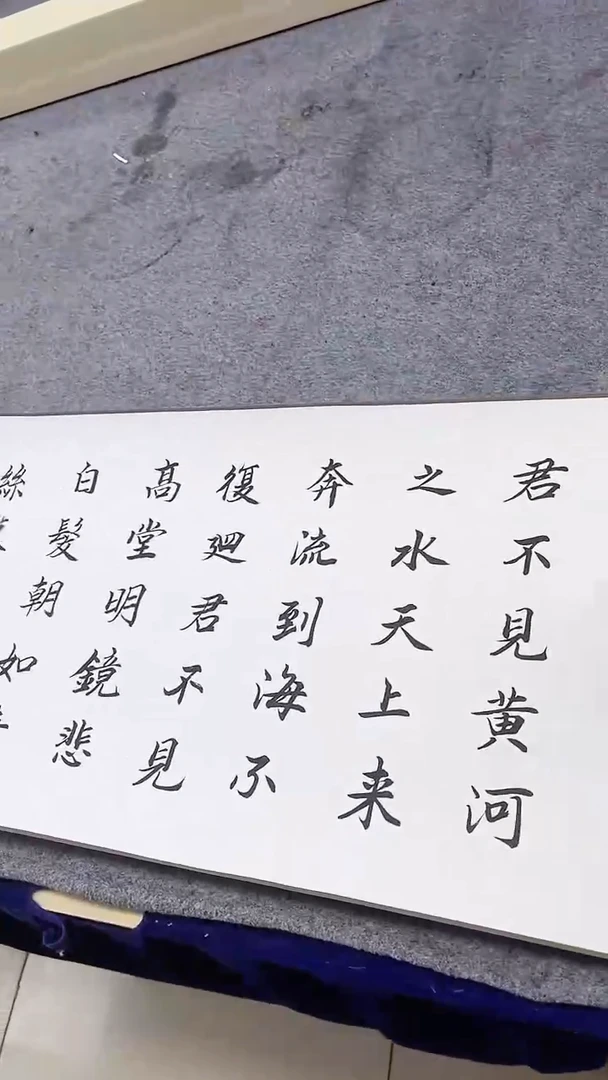 君不見黄河
之水天上来
奔流到海不
復廻君不見
高堂明鏡悲
白髮朝如
絲